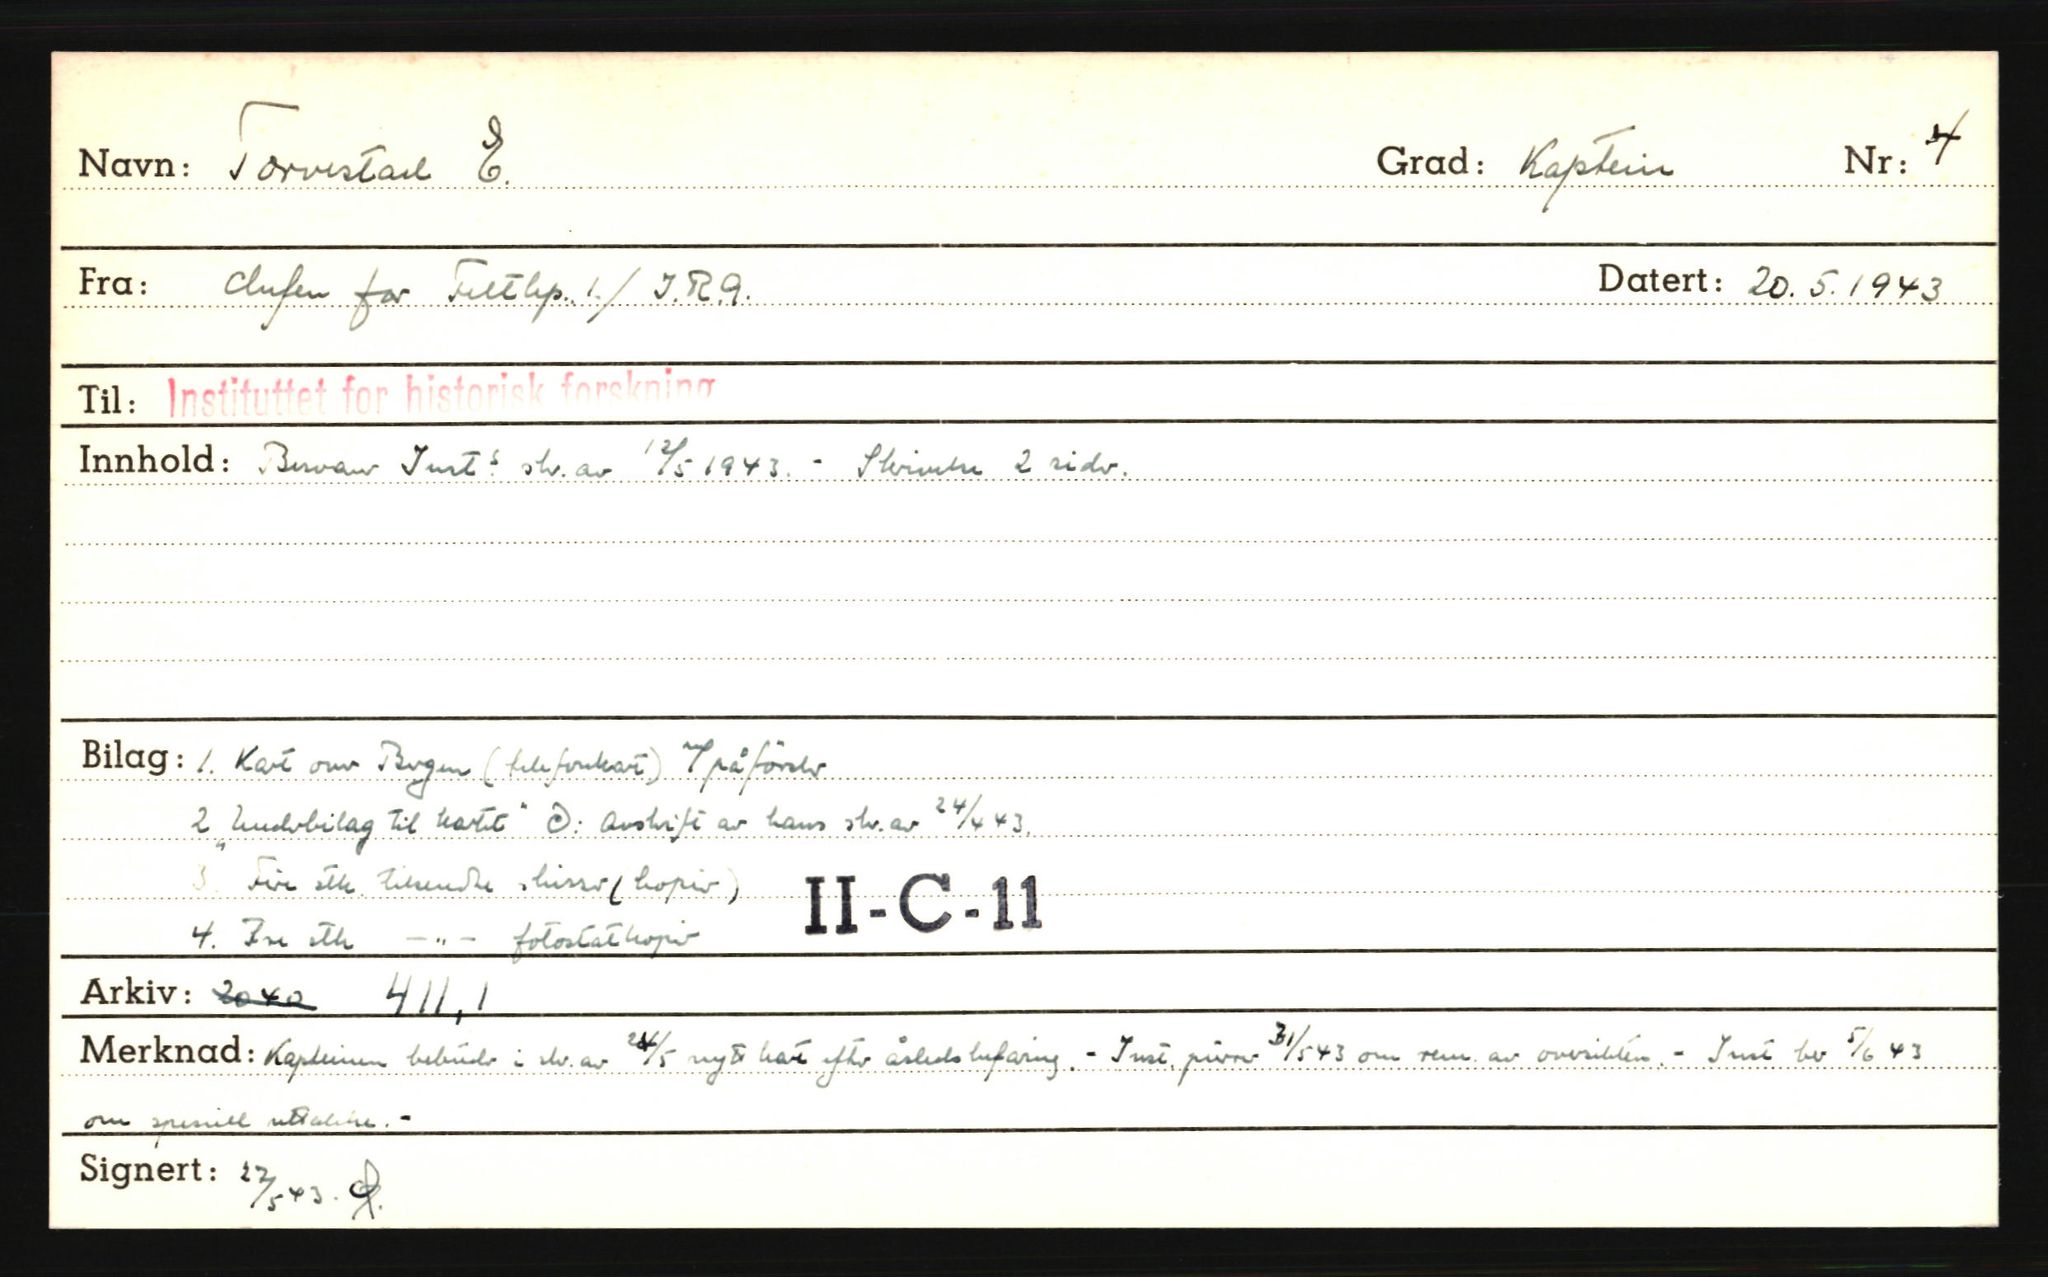 Navn: Torvestad E. Grad: Kaptein Nr: 4
Fra: Chefen for Feltkp. 1./I.R.9. Datert: 20.5.1943
Til: Instituttet for historisk forskning
Innhold: Besvarer Inst.s skr. av 12/5 1943. - Skrivelse 2 sider.
Bilag: 1. Kart over Bergen (telefonkart) m/påförsler
2 "Underbilag til kartet" ɔ: Avskrift av hans skr. av 24/4 43.
3. Fire stk. tilsendte skisser (kopier)
4. stk -"- fotostatkopier
II-C-11
Arkiv: 2040 411,1
Merknad: Kapteinen bebuder i skr. av 24/5 nytt kart efter åstedsbefaring. - Inst. purrer 31/5 43 om rem. av oversikten. - Inst ber 5/6 43
om spesiell uttalelse. -
Signert: 27/5 43.